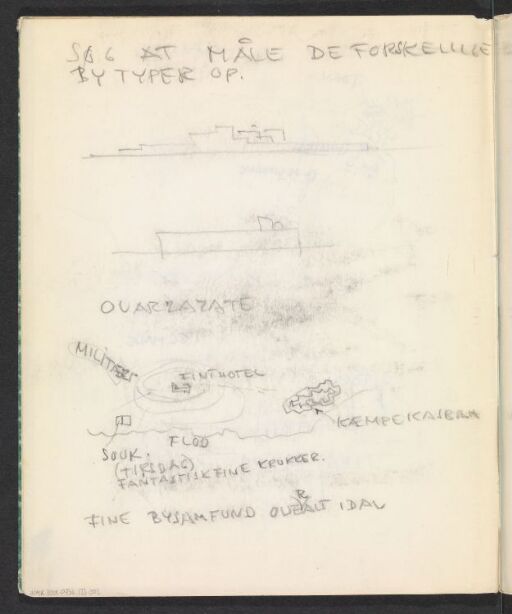 SØG AT MÅLE DE FORSKELLIGE
BYTYPER OP.
OUARZAZATE
MILITÆR
FINT HOTEL
KÆMPEKASBAH
FLOD
SOUK.
(TIRSDAG)
FANTASTISK FINE KRUKKER.
FINE BYSAMFUND OVERALT I DAL